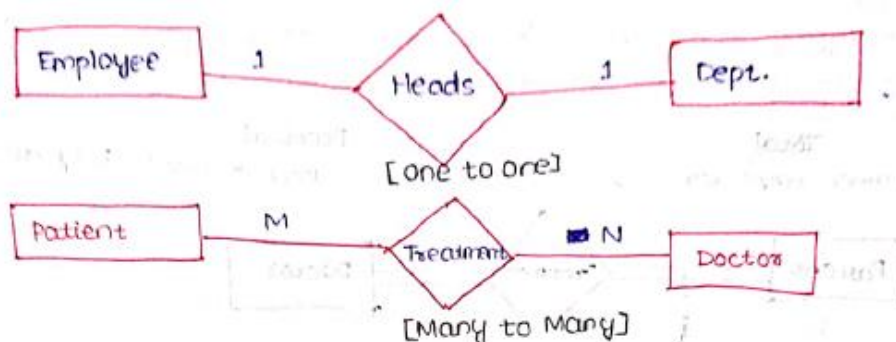 Employee 1 Heads 1 Dept.
[One to one]
Patient M Treatment N Doctor
[Many to Many]